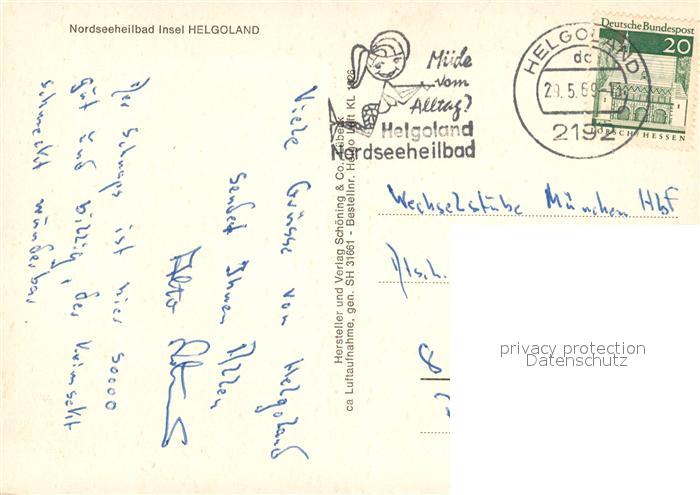 Nordseeheilbad Insel HELGOLAND
Müde
vom
Alltag?
Helgoland
Nordseeheilbad
HELGOLAND
29.5.69
2192
Deutsche Bundespost
20
LORSCH/HESSEN
Viele Grüsse von Helgoland
sendet Ihnen Allen
Der Schnaps ist hier soooo
gut und billig, der Krimsekt
schmeckt wunderbar.
Hersteller und Verlag Schöning & Co.
ca Luftaufnahme, gen. SH 31661 - Bestellnr. Helgo Luft KL
Wechselstube München Hbf
8
privacy protection
Datenschutz